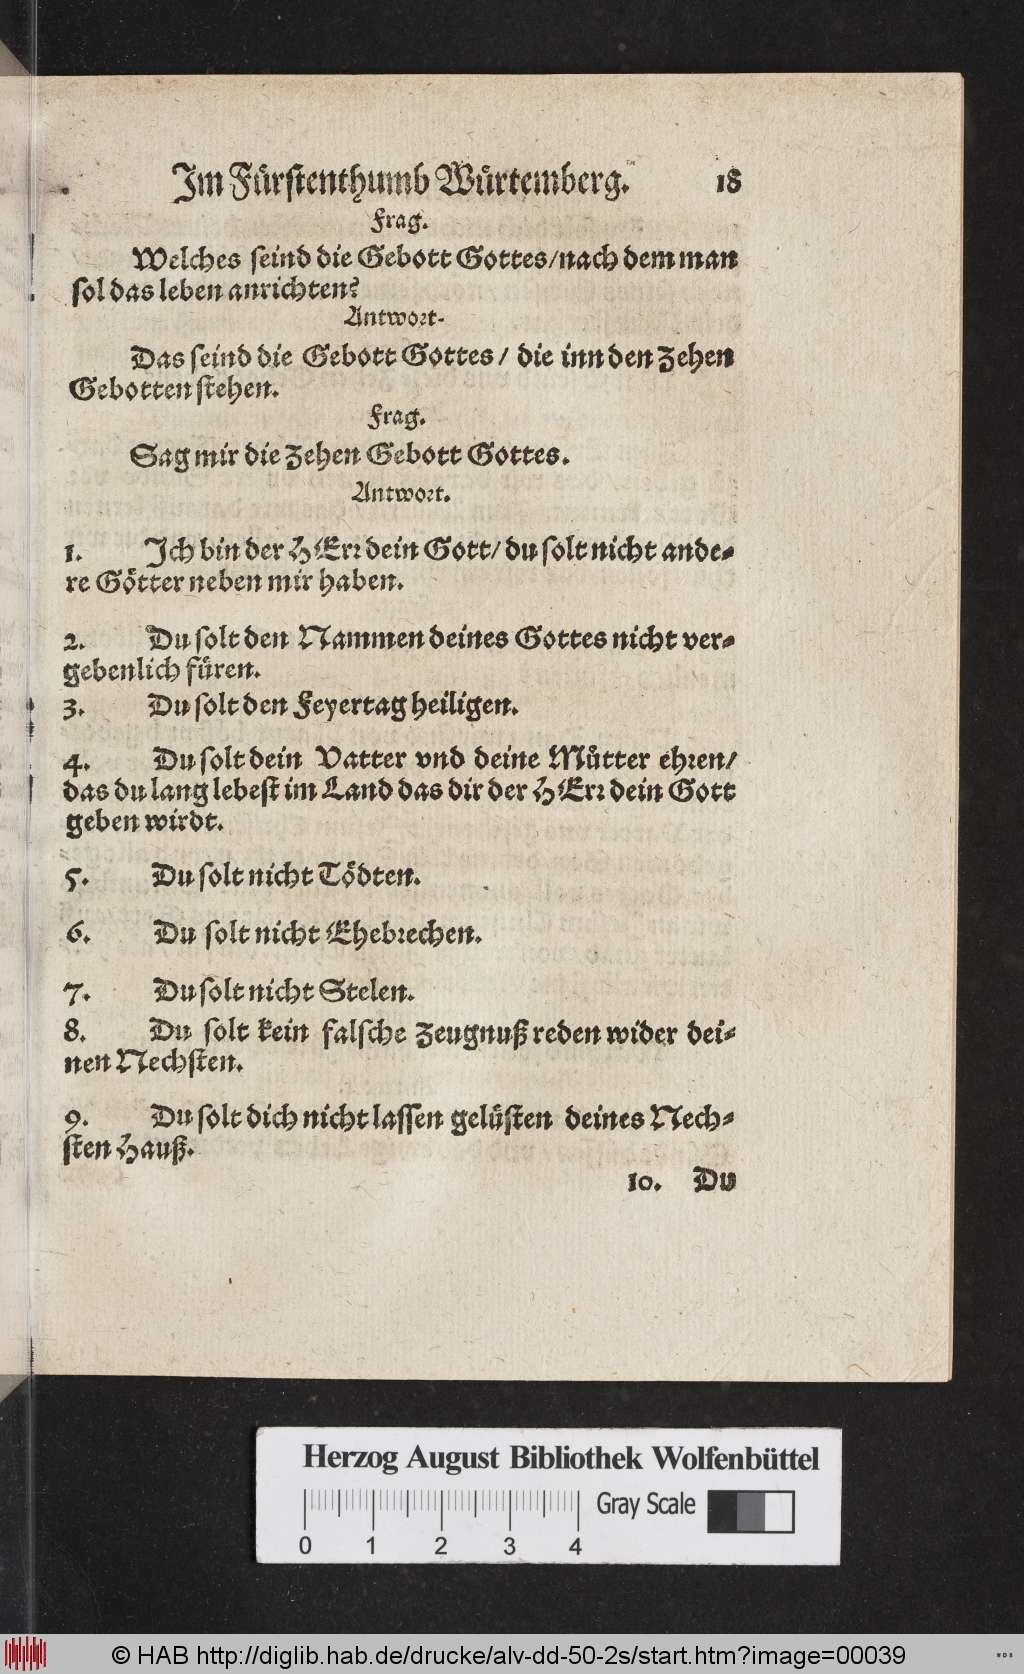 Im Fürstenthumb Würtemberg. 18
Frag.
Welches seind die Gebott Gottes/nach dem man
sol das leben anrichten?
Antwort.
Das seind die Gebott Gottes/ die inn den Zehen
Gebotten stehen.
Frag.
Sag mir die Zehen Gebott Gottes.
Antwort.
1. Ich bin der HErr dein Gott/ du solt nicht ande-
re Götter neben mir haben.
2. Du solt den Nammen deines Gottes nicht ver-
gebenlich füren.
3. Du solt den Feyertag heiligen.
4. Du solt dein Vatter vnd deine Mütter ehren/
das du lang lebest im Land das dir der HErr dein Gott
geben wirdt.
5. Du solt nicht Tödten.
6. Du solt nicht Ehebrechen.
7. Du solt nicht Stelen.
8. Du solt kein falsche Zeugnuß reden wider dei-
nen Nechsten.
9. Du solt dich nicht lassen gelüsten deines Nech-
sten Hauß.
10. Du
Herzog August Bibliothek Wolfenbüttel
Gray Scale
0 1 2 3 4
© HAB http://diglib.hab.de/drucke/alv-dd-50-2s/start.htm?image=00039